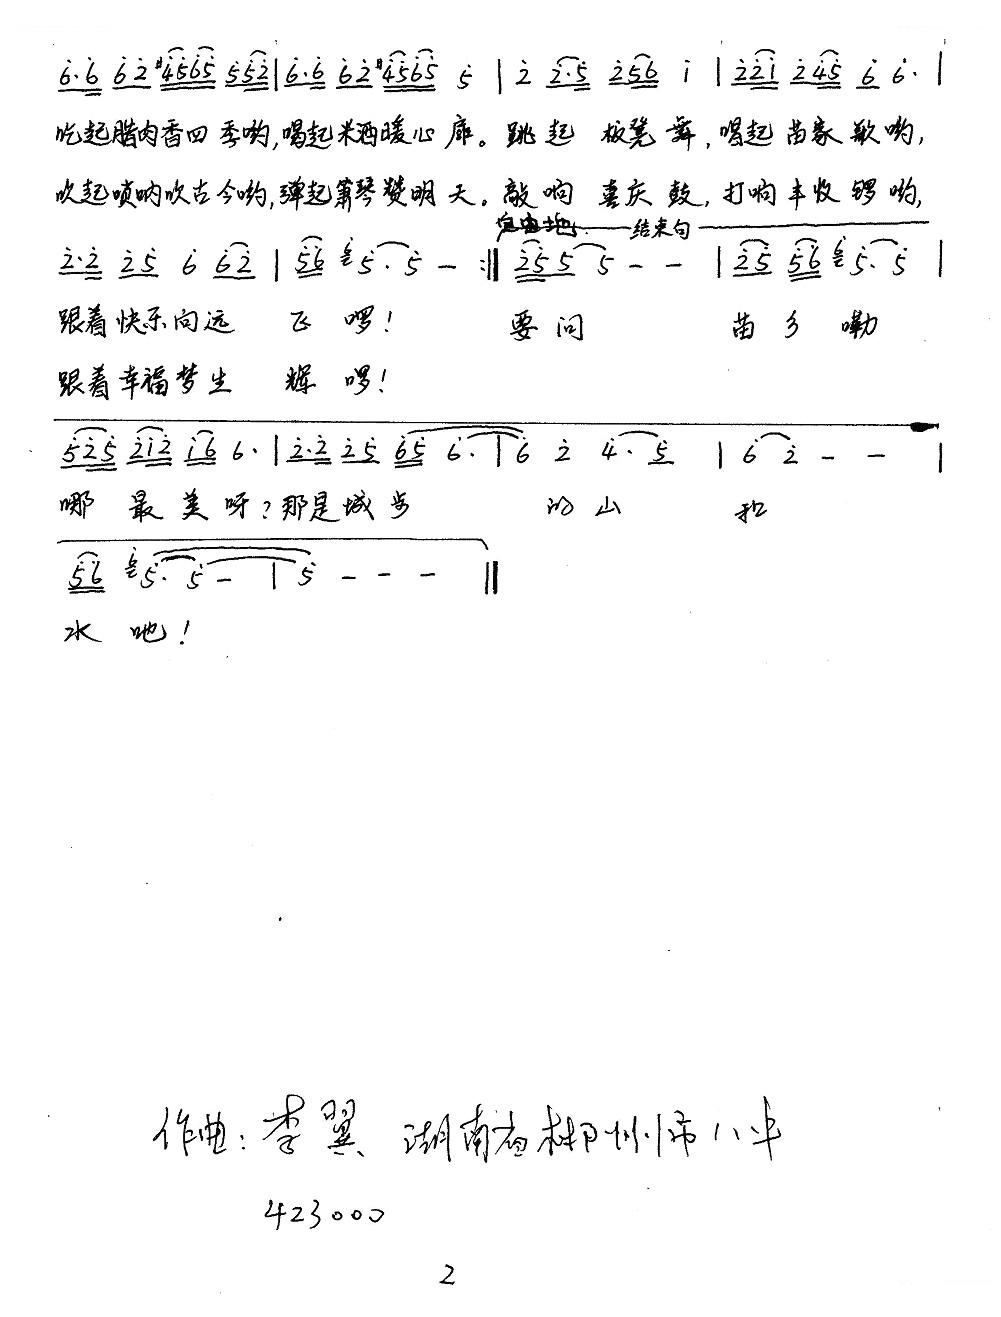 6·6 62 #4565 552 | 6·6 62 #4565 5 | 2 2·5 256 i | 221 245 6 6· |
吃起腊肉香四季哟,喝起米酒暖心扉。跳起板凳舞,唱起苗家歌哟,
吹起唢呐吹古今哟,弹起萧琴赞明天。敲响喜庆鼓,打响丰收锣哟,
自由地 结束句
2·2 25 6 62 | 56 5·5 - :|| 255 5 - - | 25 56 5·5 |
跟着快乐向远飞啰! 要问苗乡嘞
跟着幸福梦生辉啰!
525 212 i6 6· | 2·2 25 65 6· | 6 2 4·5 | 6 2 - - |
哪最美呀?那是城步的山和
56 5·5 - | 5 - - - ||
水吔!
作曲:李翼 湖南省郴州市八中
423000
2